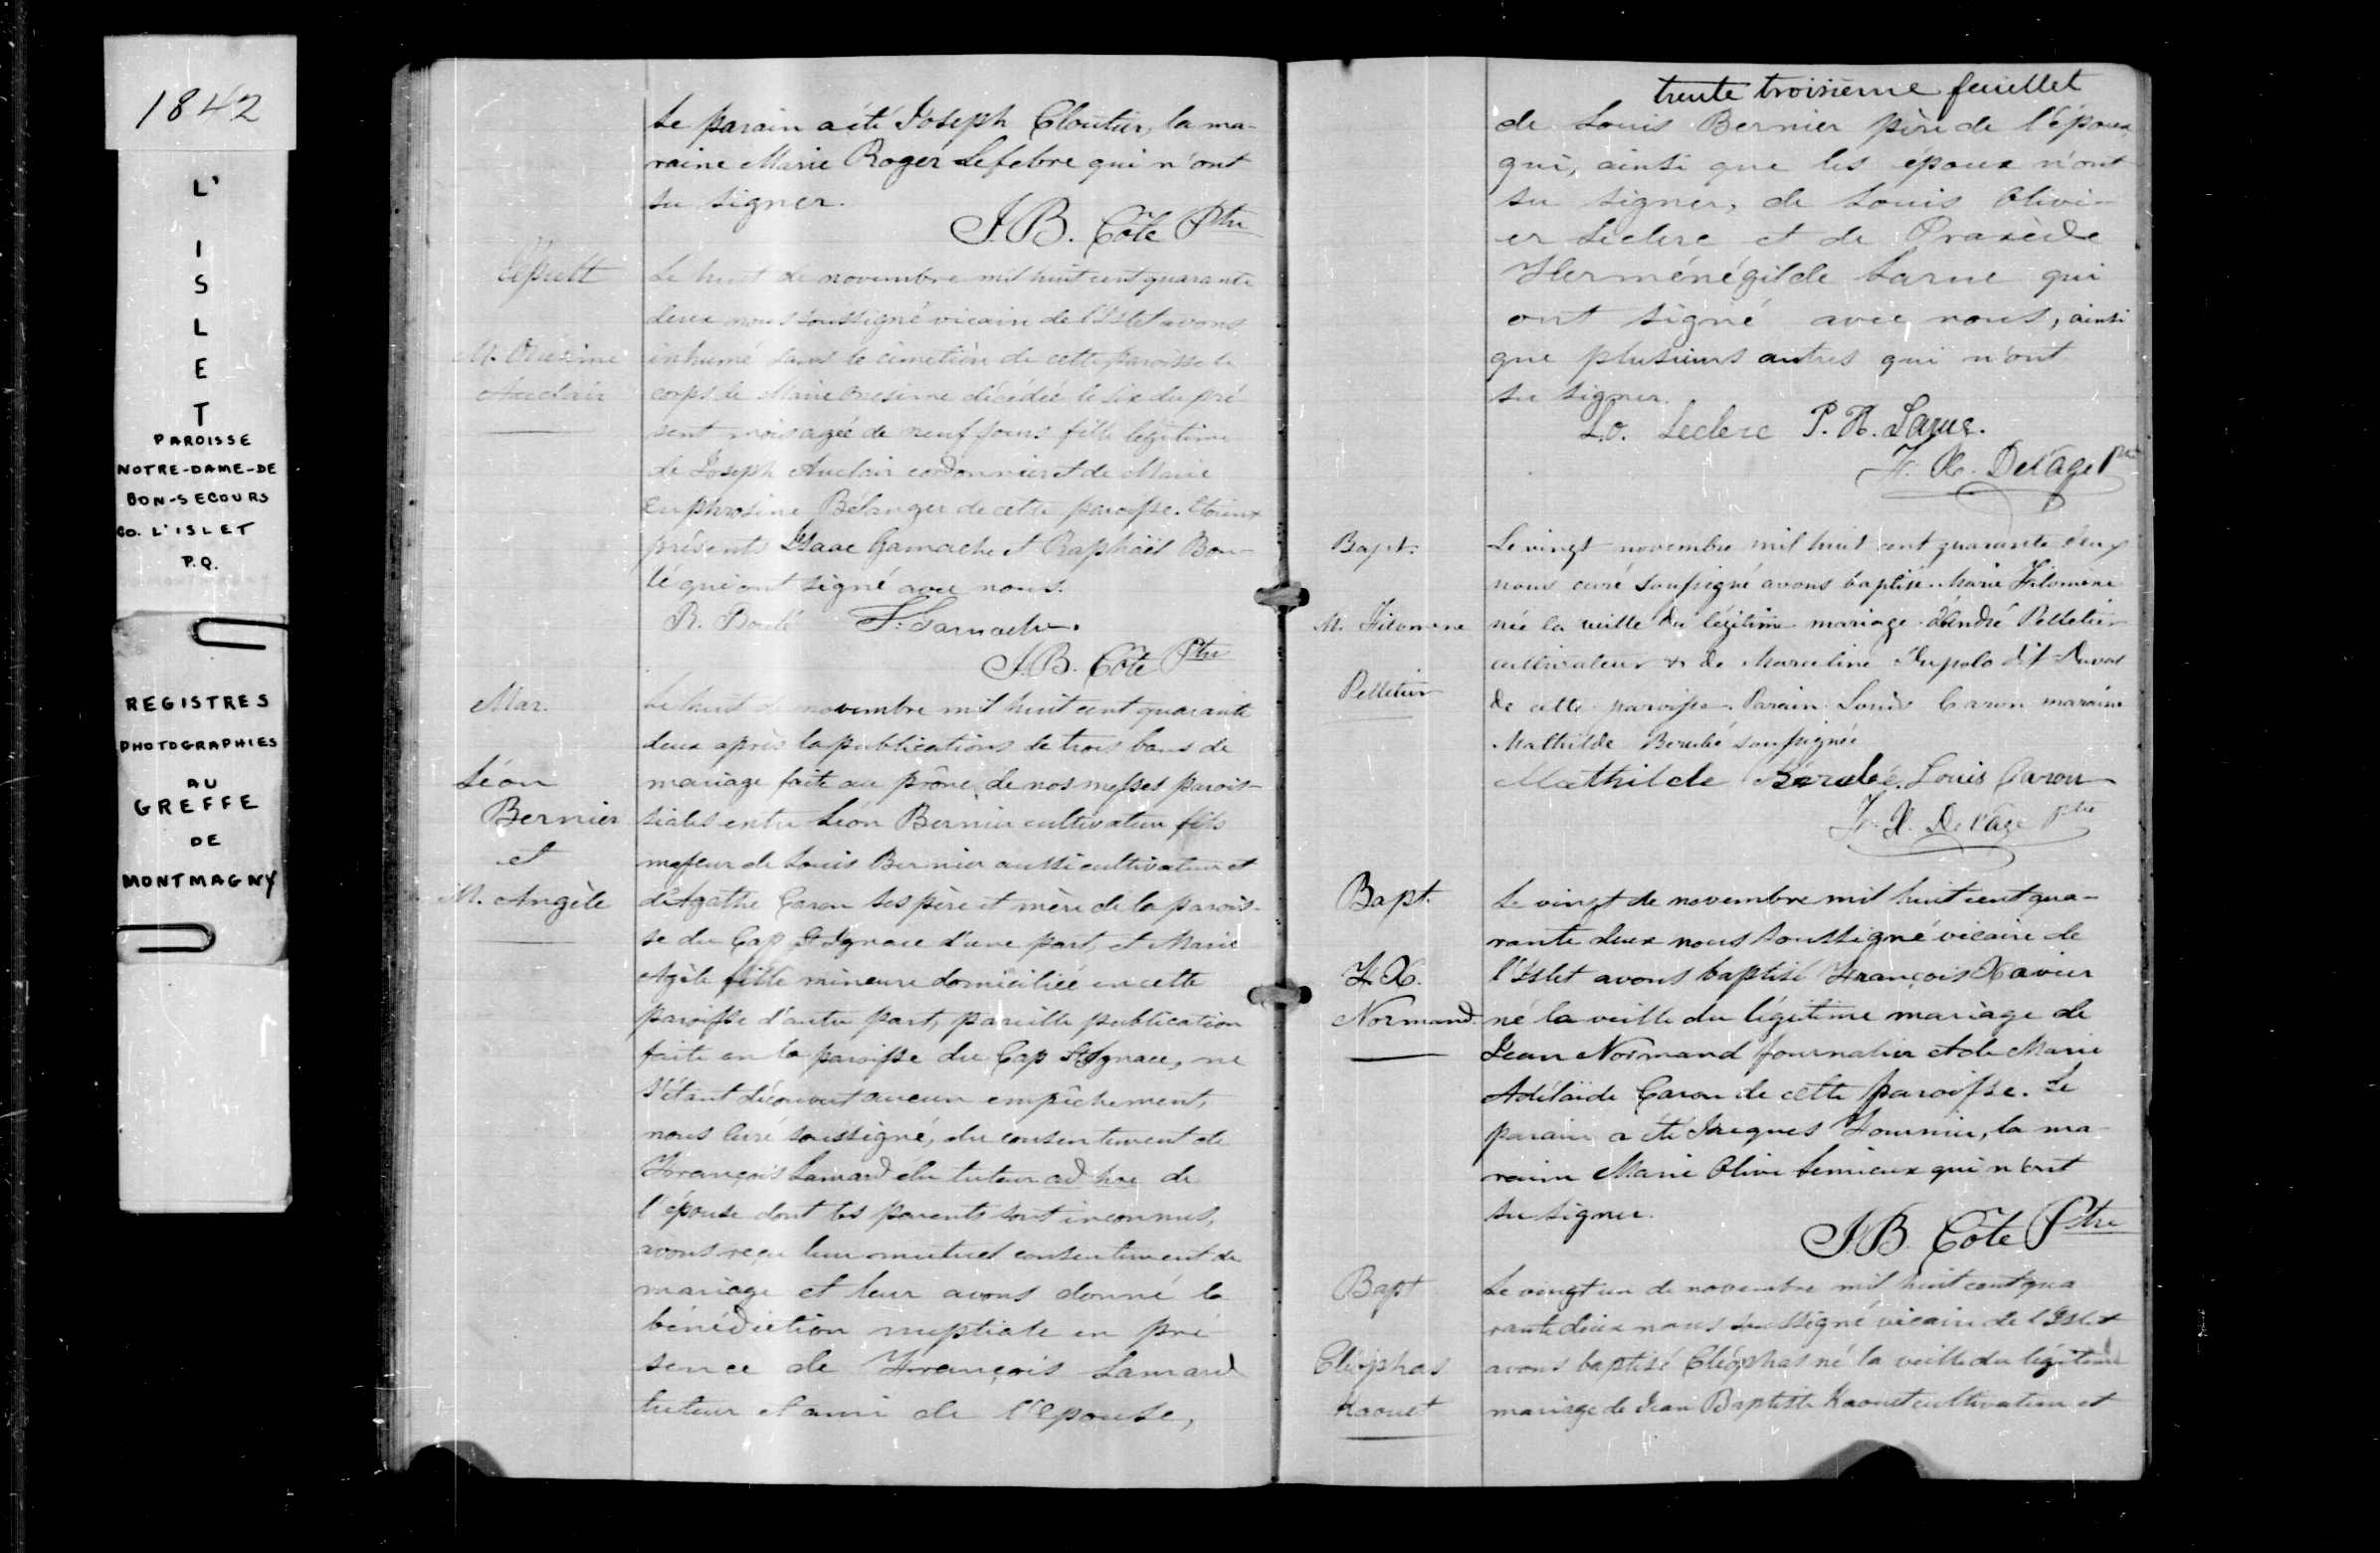 1842
L'
I
S
L
E
T
PAROISSE
NOTRE-DAME-DE
BON-SECOURS
CO. L'ISLET
P.Q.
REGISTRES
PHOTOGRAPHIES
AU
GREFFE
DE
MONTMAGNY
Le parain a été Joseph Cloutier, la ma-
raine Marie Roger Lefebre qui n'ont
su signer.
J.B. Côté Ptre
Sépult
M. Onésime
Auclair
Le huit de novembre mil huit cent quarante
deux nous soussigné vicaire de l'Islet avons
inhumé dans le cimetière de cette paroisse le
corps de Marie Onesime décédée le six du pré
sent mois agée de neuf jours fille légitime
de Joseph Auclair cordonnier et de Marie
Euphrosine Bélanger de cette paroisse. Etoient
présents Isaac Gamache et Raphaël Bou-
lé qui ont signé avec nous.
R. Boulé I. Gamache.
J.B. Côté Ptre
Mar.
Léon
Bernier
et
M. Angèle
Le huit de novembre mil huit cent quarante
deux après la publications de trois bans de
mariage faite au prône de nos messes parois-
siales entre Léon Bernier cultivateur fils
majeur de Louis Bernier aussi cultivateur et
d'Agathe Caron ses père et mère de la parois-
se du Cap St Ignace d'une part, et Marie
Agèle fille mineure domiciliée en cette
paroisse d'autre part, pareille publication
faite en la paroisse du Cap St Ignace, ne
s'étant découvert aucun empêchement,
nous curé soussigné, du consentement de
François Lamard élu tuteur ad hoc de
l'épouse dont les parents sont inconnus,
avons reçu leur mutuel consentement de
mariage et leur avons donné la
bénédiction nuptiale en pré
sence de François Lamard
tuteur et ami de l'épouse,
trente troisième feuillet
de Louis Bernier père de l'époux
qui, ainsi que les époux n'ont
su signer, de Louis Olivi-
er Leclerc et de Praxède
Herménégilde Larue qui
ont signé avec nous, ainsi
que plusieurs autres qui n'ont
su signer.
L.O. Leclerc P. H. Larue.
F. X. Delâge Ptre
Bapt.
M. Filomene
Pelletier
Le vingt novembre mil huit cent quarante deux
nous curé soussigné avons baptisé Marie Filomene
née la veille du légitime mariage d'André Pelletier
cultivateur & de Marceline Dupolo dit Duval
de cette paroisse. Parain Louis Caron maraine
Mathilde Bérubé soussignée
Mathilde Bérubé. Louis Caron
F. X. Delâge ptre
Bapt.
F. X.
Normand.
Le vingt de novembre mil huit cent qua-
rante deux nous soussigné vicaire de
l'Islet avons baptisé François Xavier
né la veille du légitime mariage de
Jean Normand journalier et de Marie
Adélaïde Caron de cette paroisse. Le
parain a été Jacques Fournier, la ma
raine Marie Olive Lemieux qui n'ont
su signer.
J.B. Côté Ptre
Bapt
Cléophas
Kaouet
Le vingt un de novembre mil huit cent qua
rante deux nous soussigné vicaire de l'Islet
avons baptisé Cléophas né la veille du légitime
mariage de Jean Baptiste Kaouet cultivateur et